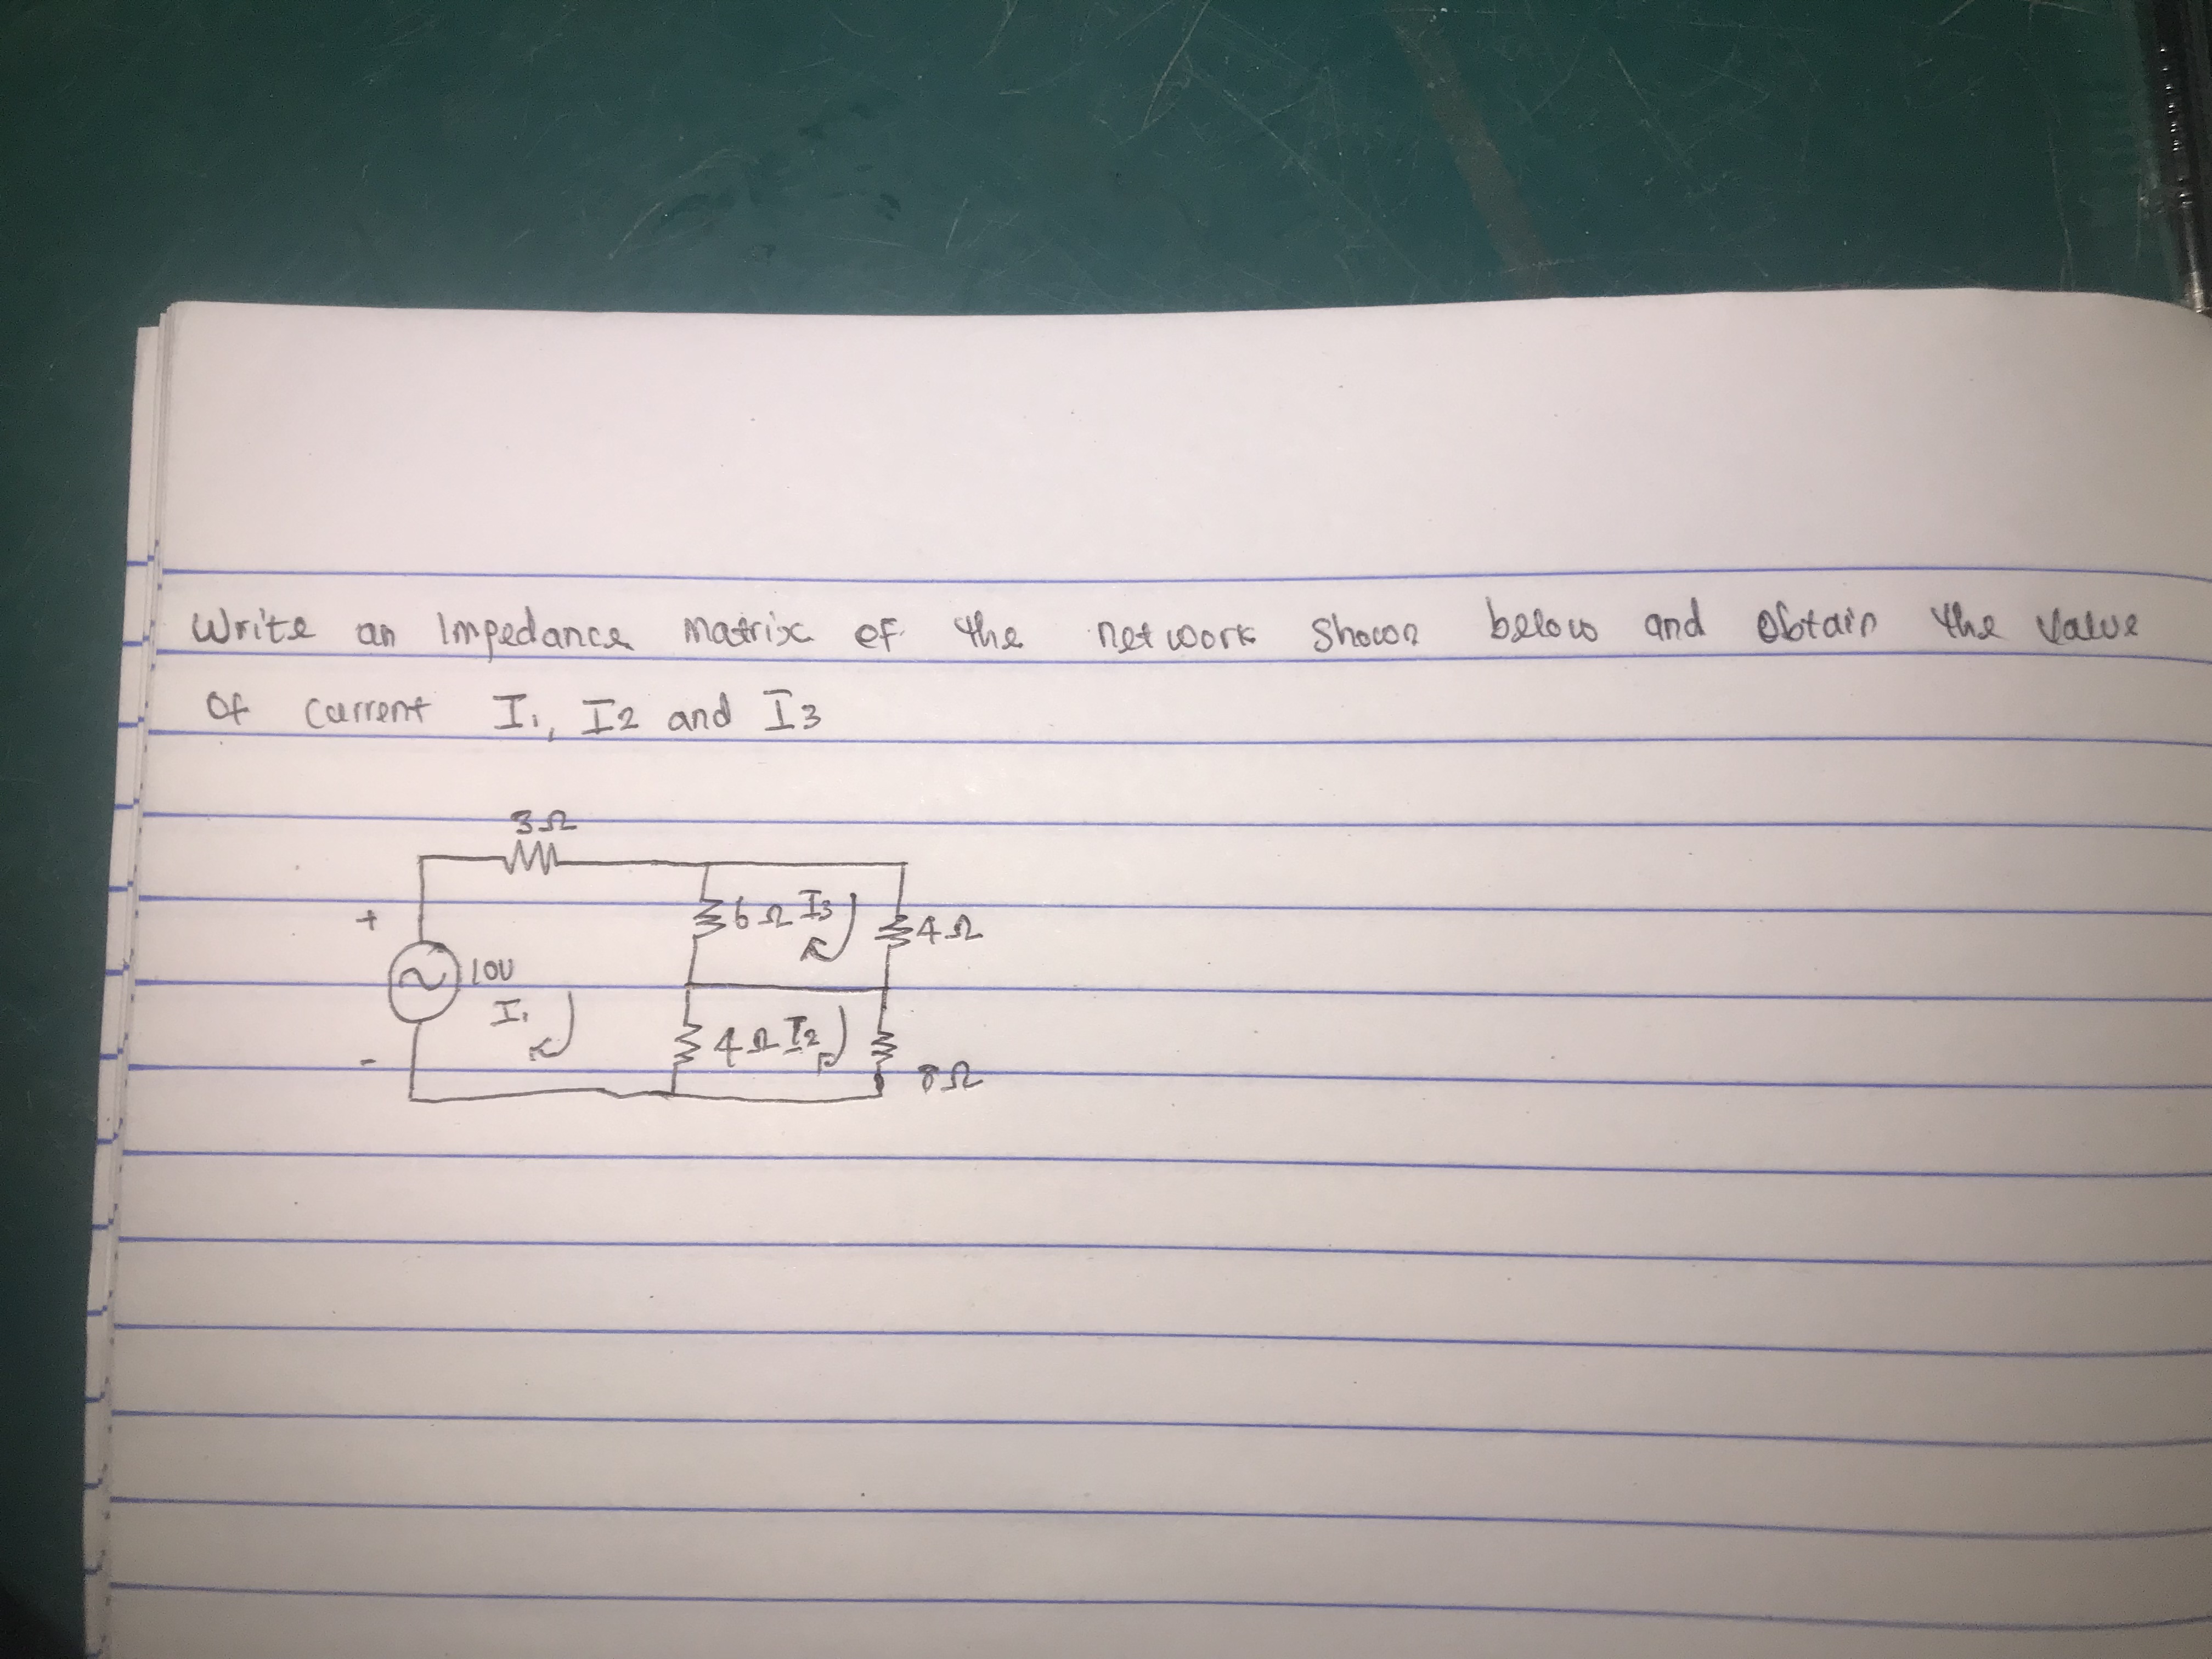 Write an Impedance matrix of the network shown below and obtain the value
of current I1, I2 and I3
3Ω
+
6Ω I3
4Ω
10V
I1
4Ω I2
-
8Ω